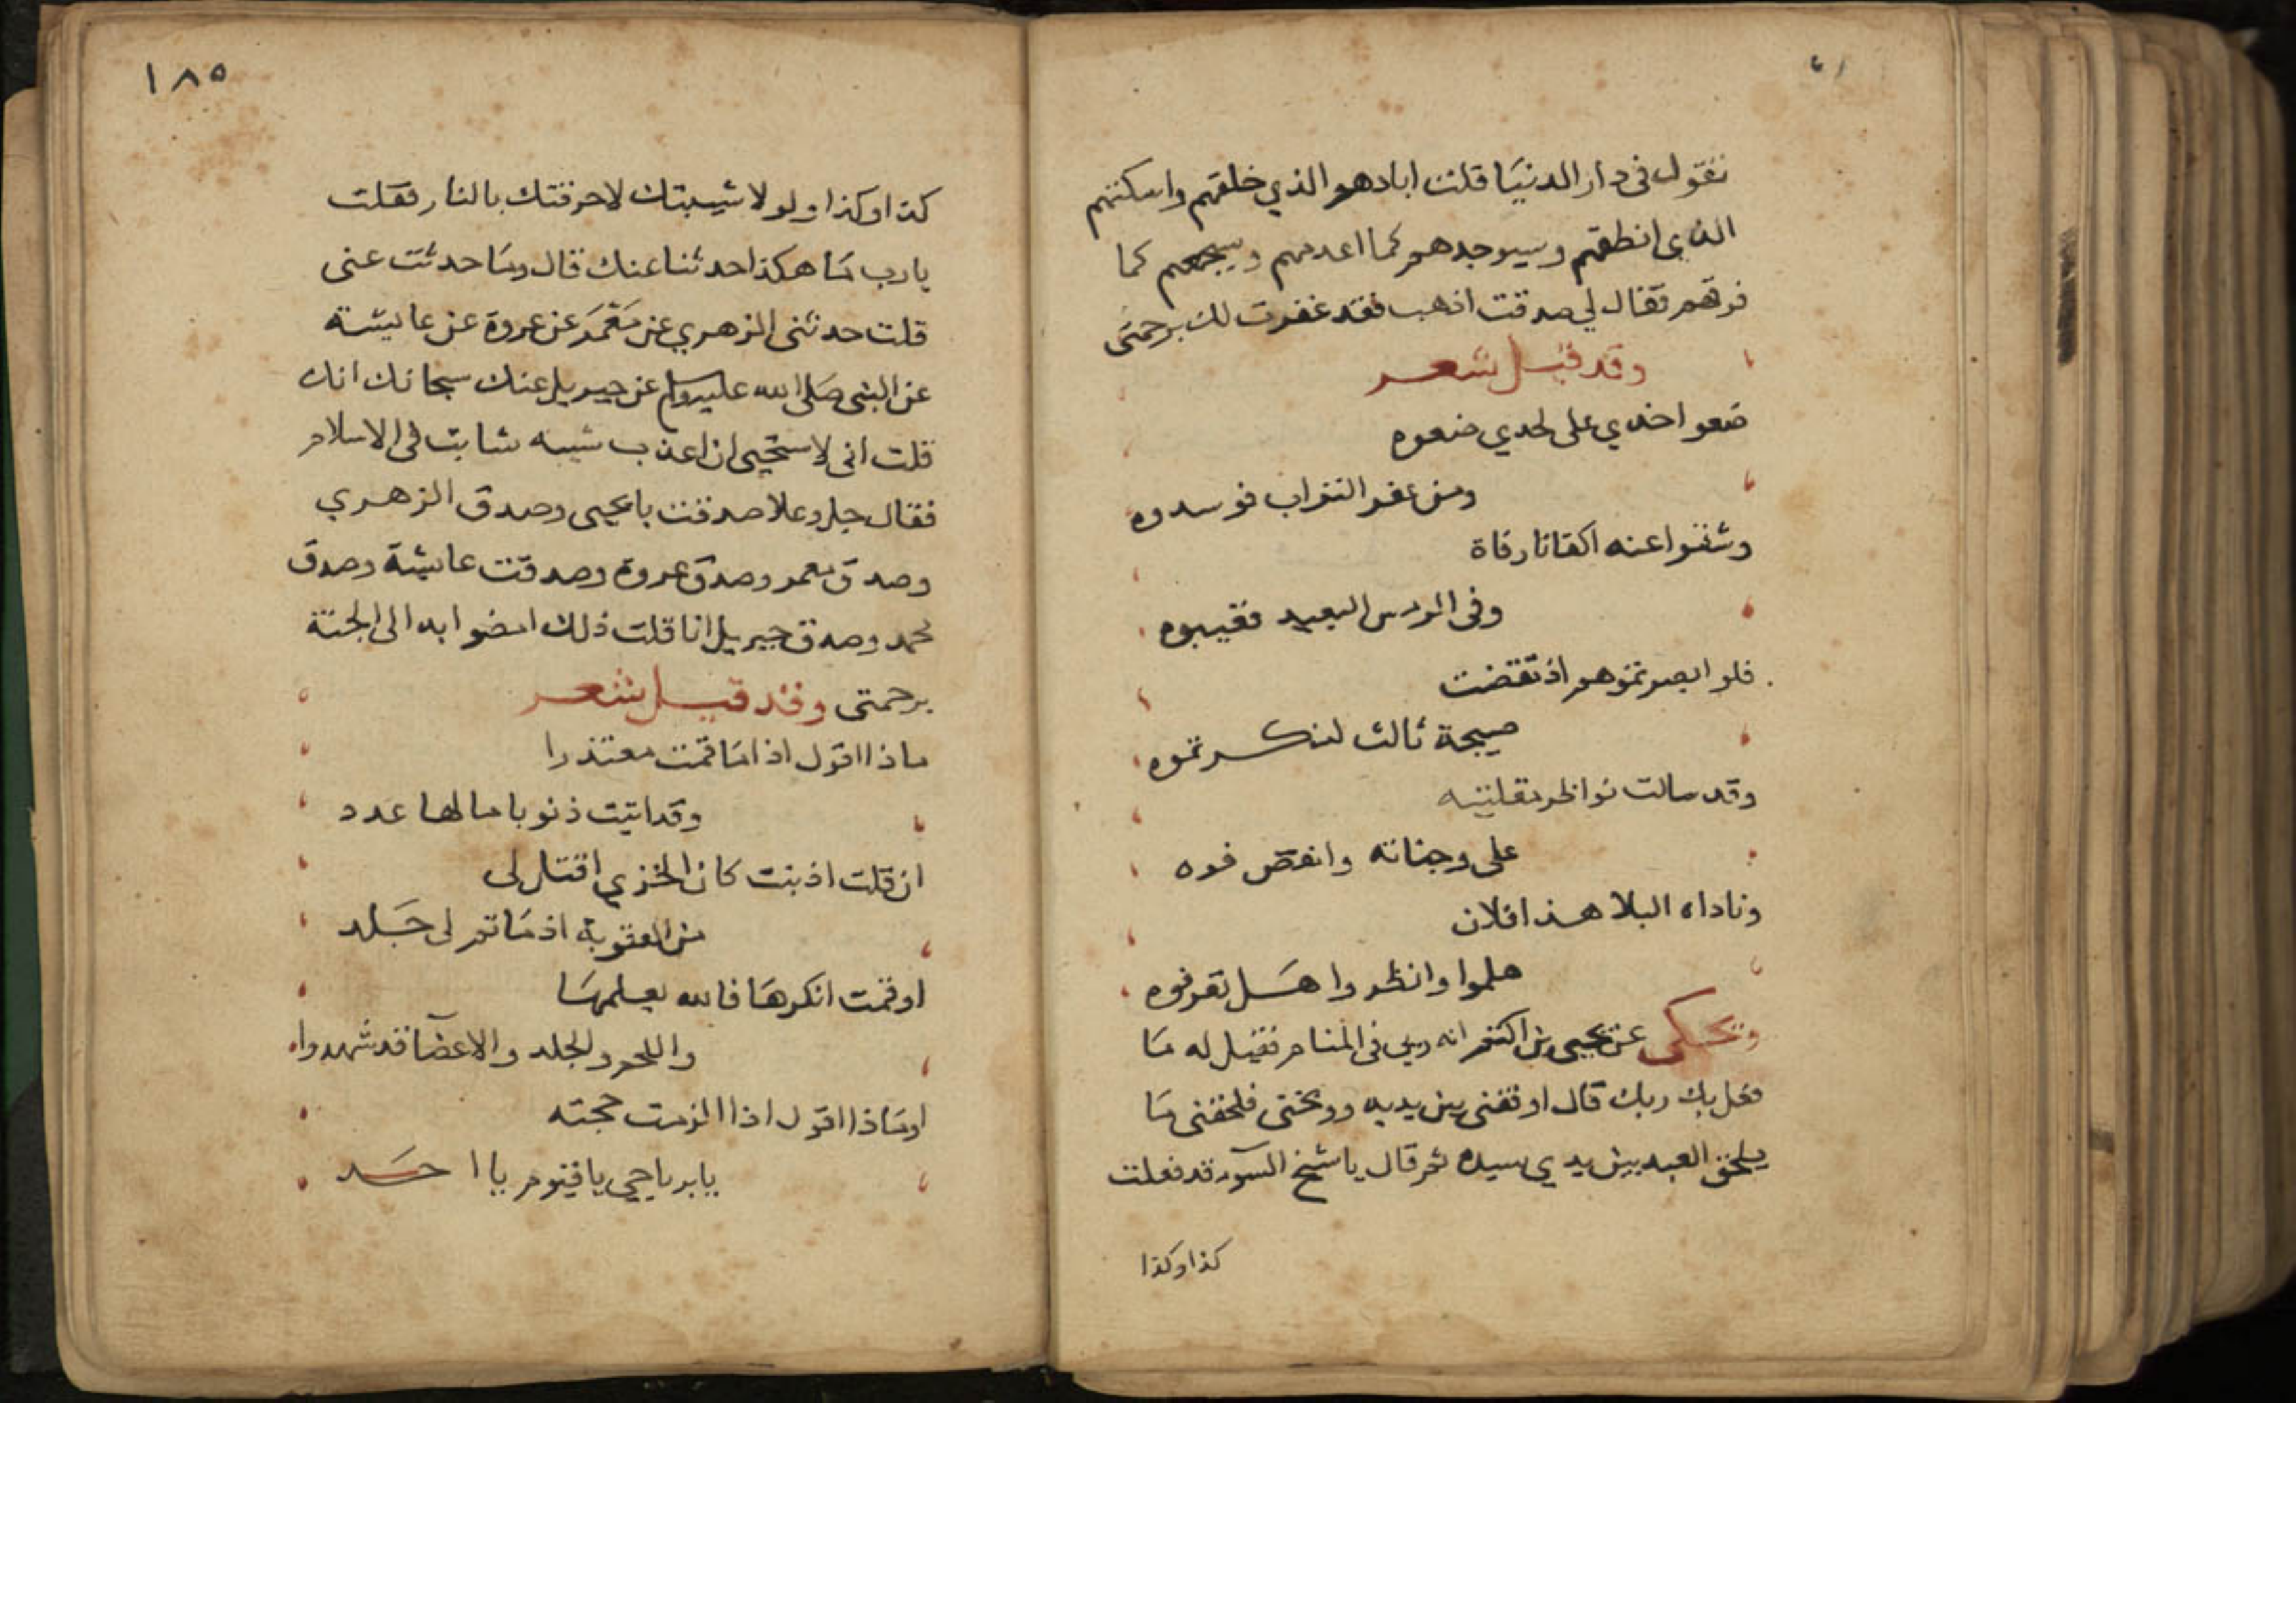 تقول في دار الدنيا قلت ابادهم الذي خلقهم واسكنهم
الذي انطقهم وسيوجدهم كما اعدمهم ويجمعهم كما
فرقهم فقال لي صدقت اذهب فقد غفرت لك برحمتي
وقد قيل شعر
ضعو اخدي على لحدي ضعوه
ومن عفر التراب فوسدوه
وشقوا عنه اكفانا رقاة
وفي الرمس البعيد فغيبوه
فلو ابصرتموهم اذ تقضت
صبيحة ثالث لنكرتموه
وقد سالت نواظر مقلتيه
على وجناته وانفض فوه
وناداه البلا هذا فلان
هلموا وانظروا هل تعرفوه
ويحكى عن يحيى بن اكتم انه روي في المنام فقيل له ما
فعل بك ربك قال اوقفني بين يديه ووبخني فلحقني ما
يلحق العبد بين يدي سيده ثم قال يا شيخ السوء قد فعلت
كذا وكذا
١٨٥
كذا وكذا ولولا شيبتك لاحرقتك بالنار فقلت
يا رب ما هكذا حدثنا عنك قال وما حدثت عني
قلت حدثني الزهري عن معمر عن عروة عن عايشة
عن النبي صلى الله عليه وسلم عن جبريل عنك سبحانك انك
قلت اني لاستحيي ان اعذب شيبه شابت في الاسلام
فقال جل وعلا صدقت يا يحيى وصدق الزهري
وصدق معمر وصدق عروة وصدقت عايشة وصدق
محمد وصدق جبريل انا قلت ذلك امضوا به الى الجنة
برحمتي وقد قيل شعر
ماذا اقول اذا ما قمت معتذرا
وقد اتيت ذنوبا ما لها عدد
ان قلت اذنبت كان الخزي اقتل لي
من العقوبة اذ ما تم لي جلد
او قمت انكرها فالله يعلمها
واللحم والجلد والاعضا قد شهدوا
او ماذا اقول اذا الزمت حجته
يا بر يا حي يا قيوم يا احد